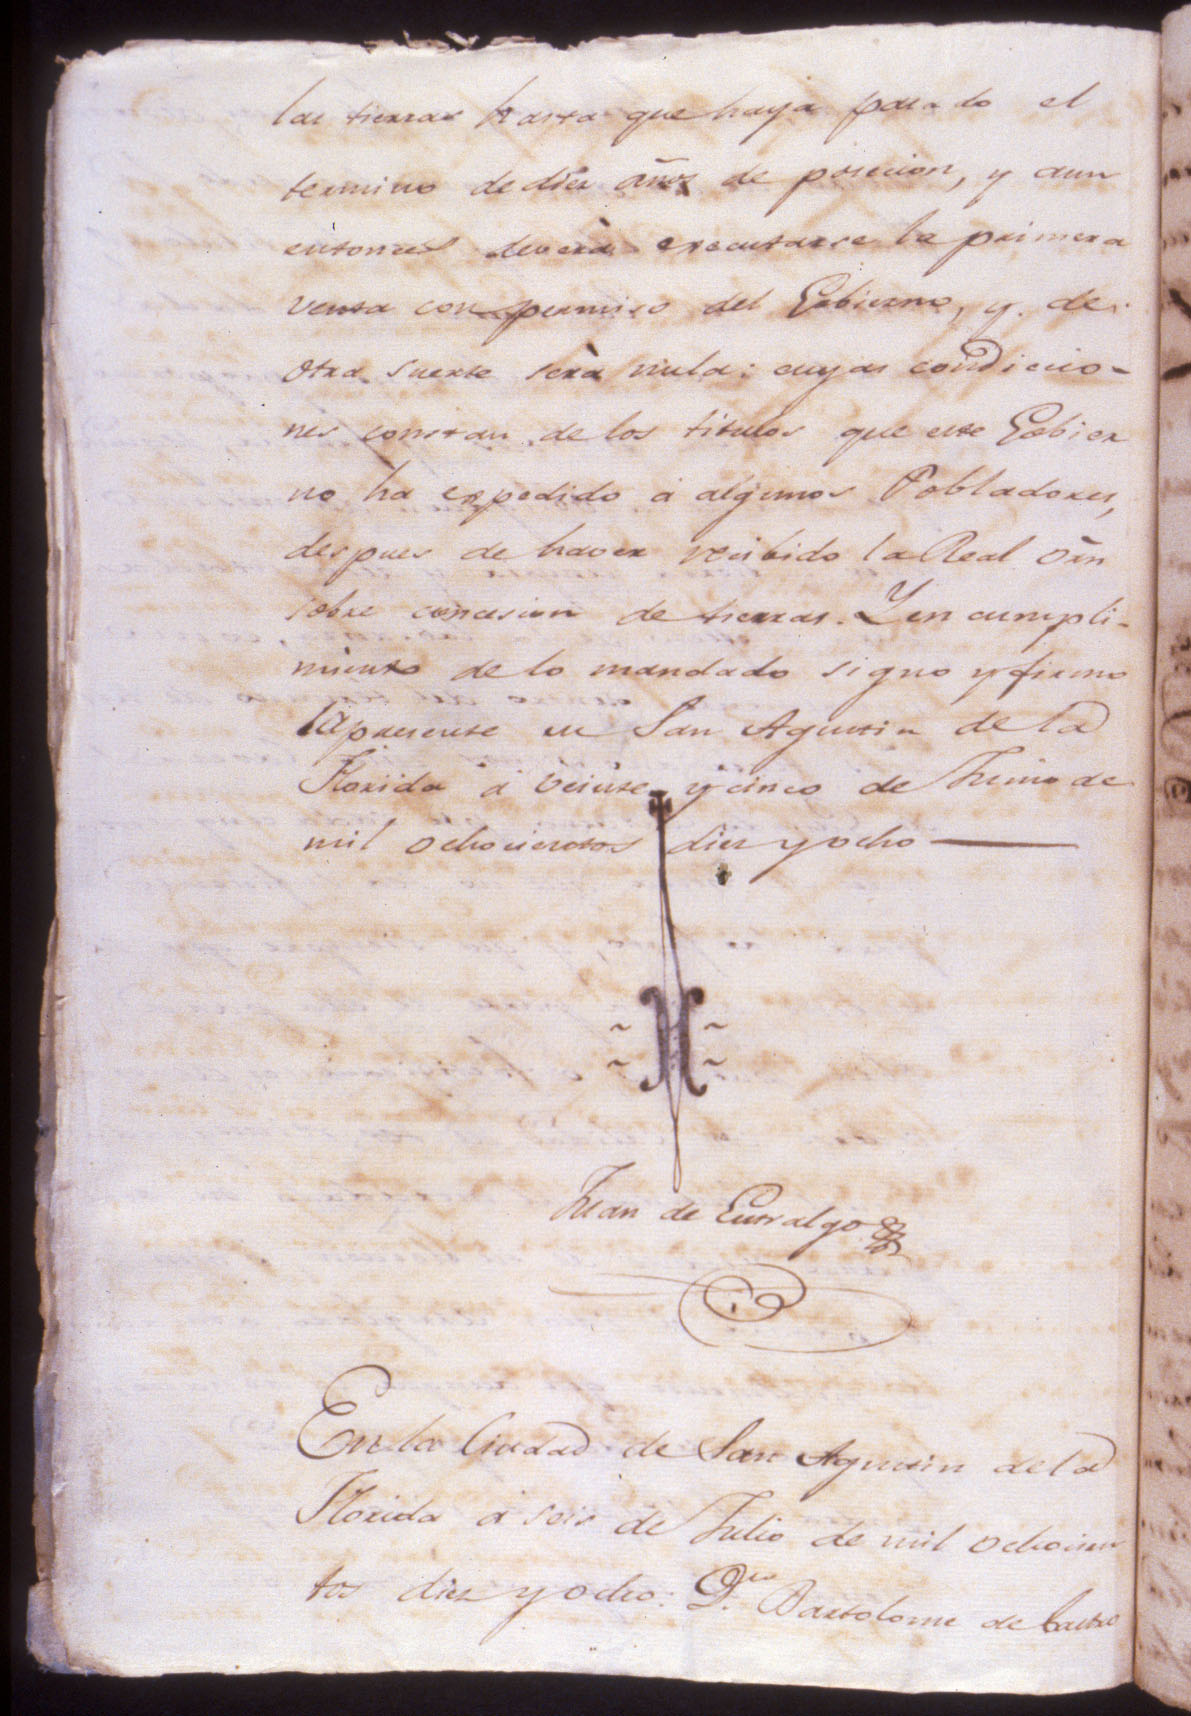 las tierras hasta que haya pasado el
termino de diez años de posecion, y aun
entonces deverà executarse la primera
venta con permiso del Gobierno, y de
otra suerte serà nula: cuyas condicio-
nes constan de los titulos que este Gobier
no ha expedido á algunos Pobladores,
despues de haver recibido la Real Orn
sobre concesion de tierras. Y en cumpli-
miento de lo mandado signo y firmo
la presente en San Agustin de la
Florida á veinte y cinco de Junio de
mil ochocientos diez y ocho
Juan de Entralgo
En la Ciudad de San Agustin de la
Florida á seis de Julio de mil ochocien
tos diez y ocho: Dn Bartolome de Castro